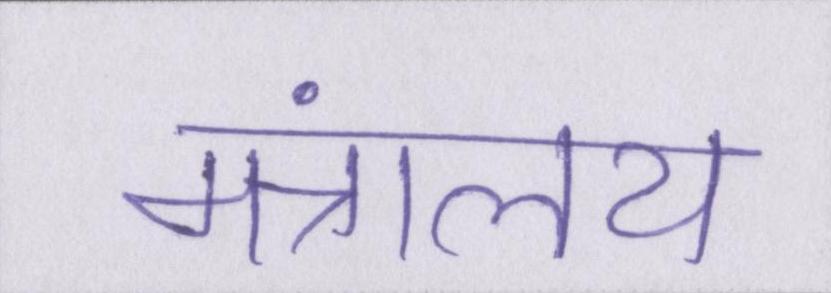 मंत्रालय